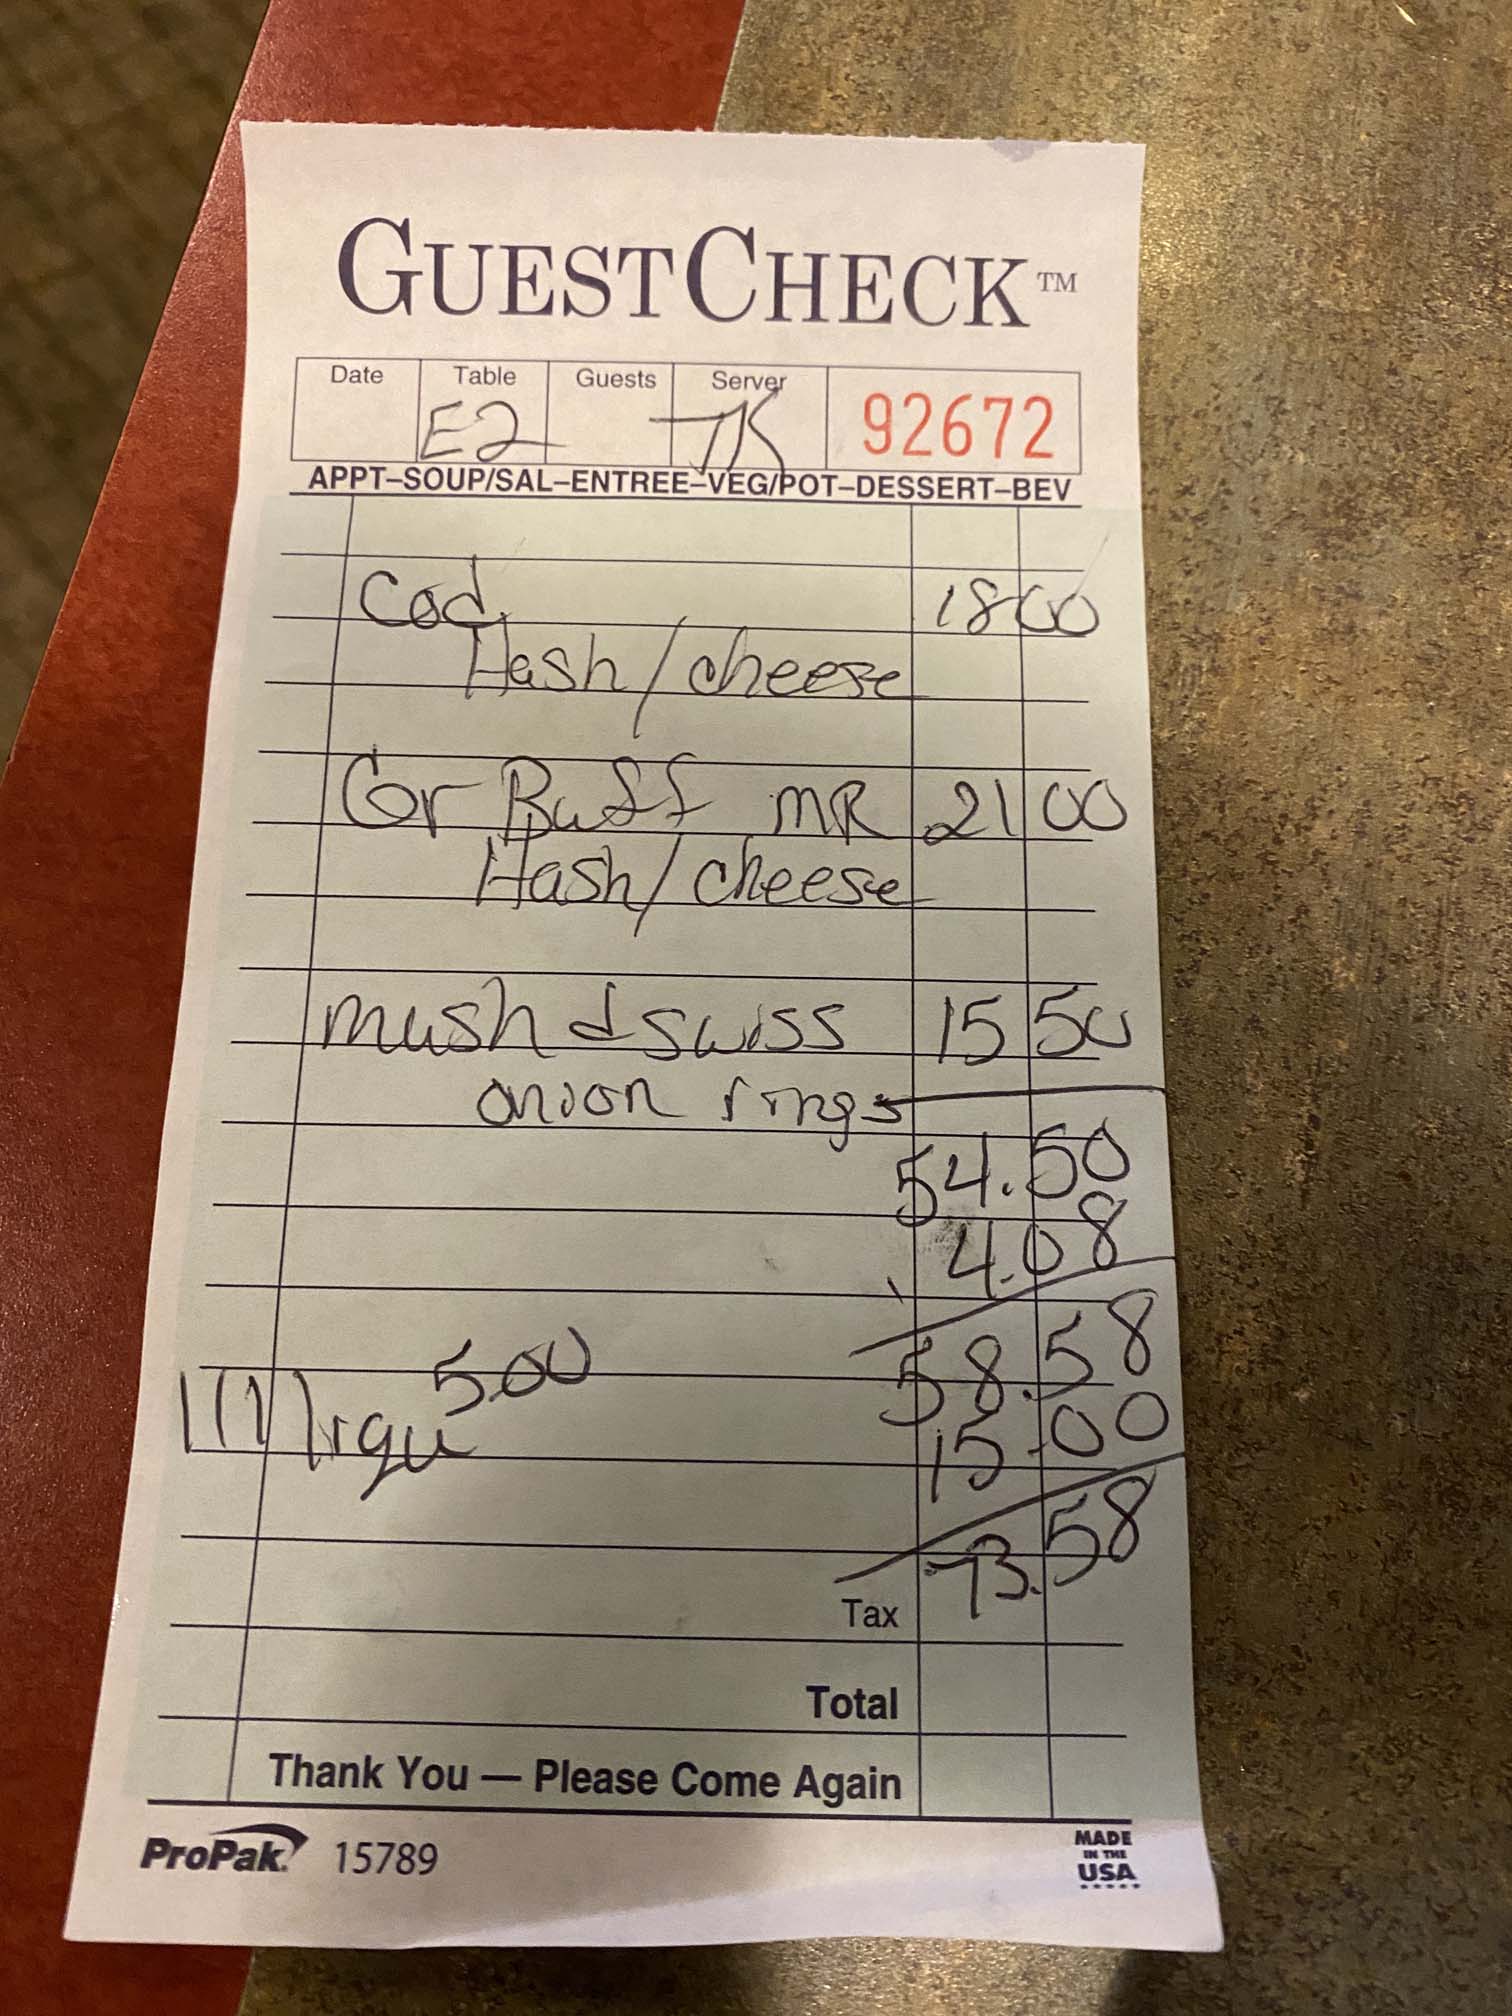 GUESTCHECK™
Date Table Guests Server
E2 JK 92672
APPT–SOUP/SAL–ENTREE–VEG/POT–DESSERT–BEV
Cod 18 00
Hash/cheese
Gr Buff MR 21 00
Hash/cheese
mush & swiss 15 50
onion rings
54.50
4.08
58.58
5.00
15.00
73.58
Tax
Total
Thank You — Please Come Again
ProPak 15789
MADE
IN THE
USA